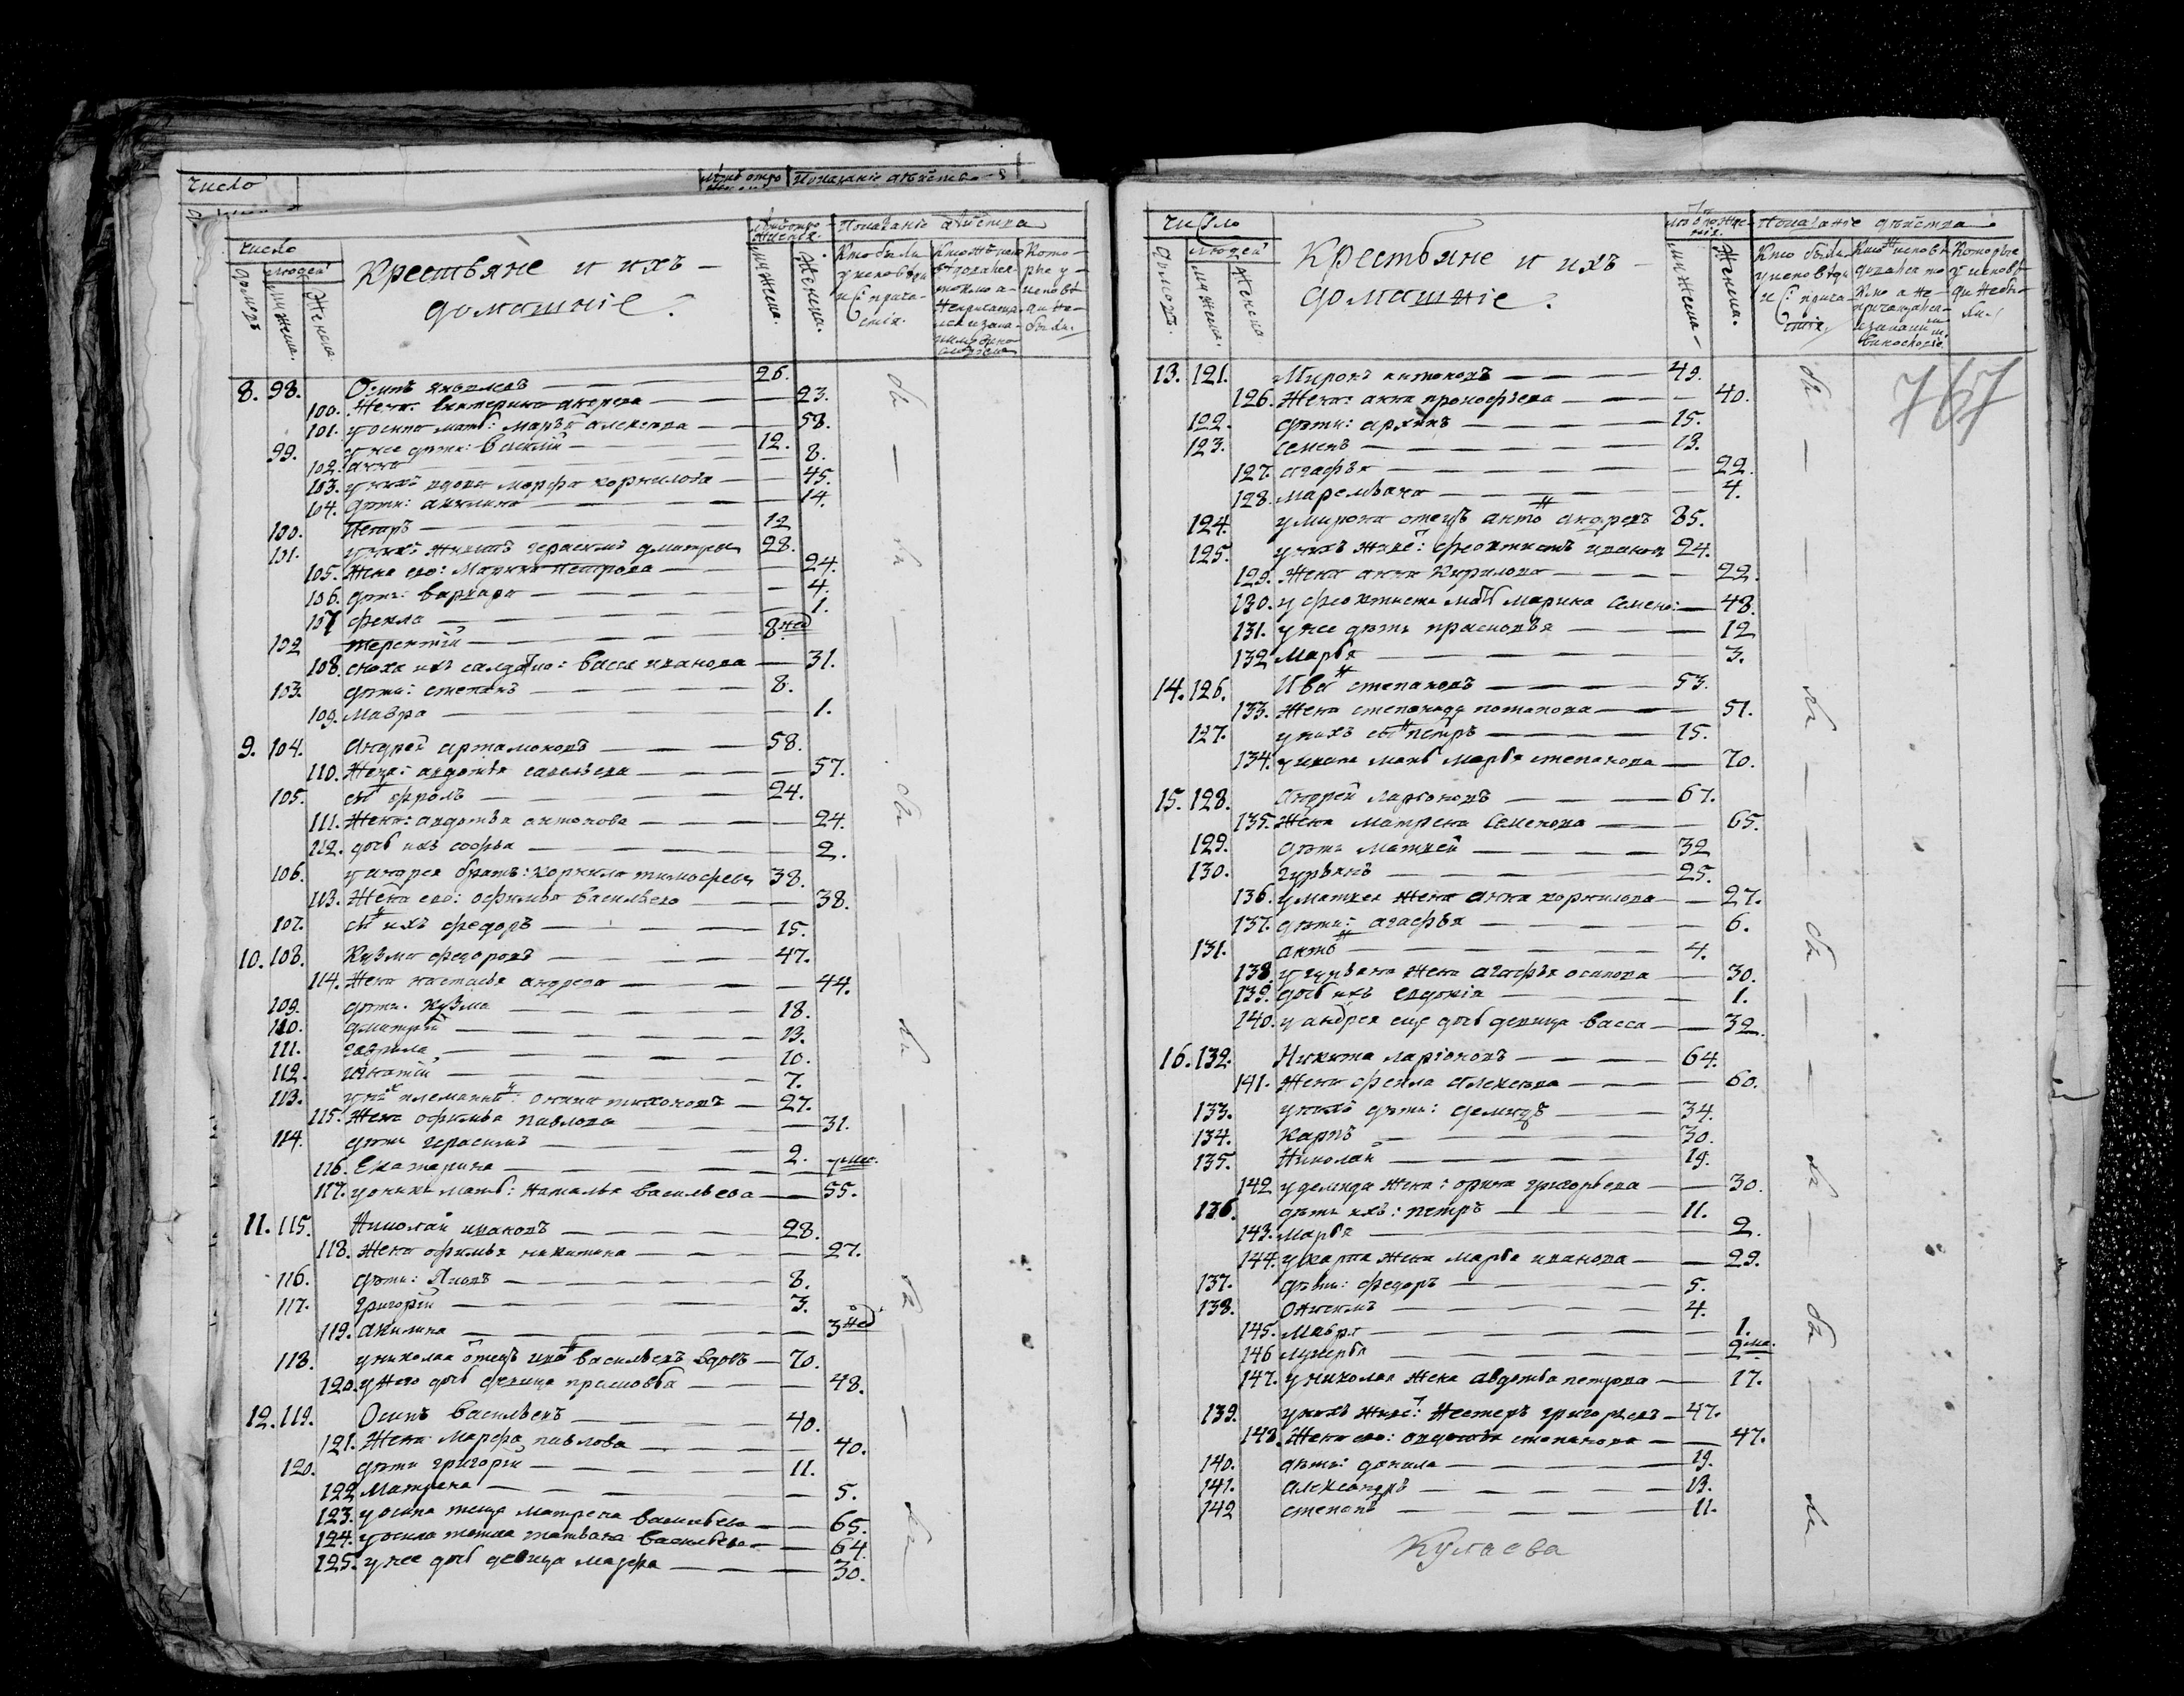 число
Показание действа
число
людей
домовъ
мужеска.
женска
Крестьяне и ихъ -
домашніе.
Лѣта отро
жденія.
мужеска.
женска.
Показаніе действа
Кто были
у исповеди
и С: прича-
стія.
8. 98. Осипъ яковлевъ — 26.
100. Жена: Екатерина андреева — 23.
101. у осипа мать: Марья алексеева — 58.
99. у нее дѣти: Василій — 12.
102. анна — 8.
103. у нихъ вдова марфа корнилова — 45.
104. дѣти: акилина — 14.
100. Петръ — 12
101. у нихъ живетъ герасимъ дмитрев 28.
105. Жена его: Марина петрова — 24.
106. дѣти: варвара — 4.
107 фекла — 1.
102 терентій — 8 нед
108. сноха ихъ салда: васса иванова — 31.
103. дѣти: степанъ — 8.
109. Мавра — 1.
9. 104. Андрей артамоновъ — 58.
110. Жена: авдотья савельева — 57.
105. сынъ фролъ — 24.
111. Жена: авдотья антонова — 24.
112. дочь ихъ софья — 2.
106. у андрея братъ: корнила тимофеев 38.
113. Жена его: офимья васильева — 38.
107. сынъ ихъ федоръ — 15.
10. 108. Кузма федоровъ — 47.
114. Жена настасья андреева — 44.
109. дѣти. кузма — 18.
110. дмитрій — 13.
111. гаврила — 10.
112. игнатій — 7.
113. у них племянник: оники тихоновъ — 27.
115. Жена офимья павлова — 31.
114. дѣти герасимъ — 2.
116. Екатерина — 7 мес.
117. у оники мать: наталья васильева — 55.
11. 115. Николай ивановъ — 28.
118. Жена офимья никитина — 27.
116. дѣти: Яковъ — 8.
117. григорій — 3.
119. акилина — 3 нед
118. у николая отецъ иван васильевъ вдовъ — 70.
120. у него дочь девица прасковья — 48.
12. 119. Осипъ васильевъ — 40.
121. Жена марфа павлова — 40.
120. дѣти григорій — 11.
122 Матрена — 5.
123. у осипа теща матрена васильева — 65.
124. у осипа тетка татьяна васильева — 64.
125. у нее дочь девица марфа — 30.
число
людей
домовъ.
мужеска.
женска
Крестьяне и ихъ -
домашніе.
мужеска
женска.
Показаніе действа
Кто были
у исповеди
и С: прича-
стія.
Которые
у исповѣ-
ди не бы-
ли.
767
13. 121. Миронъ антоновъ — 49.
126. Жена: анна прокофьева — 40.
122. дѣти: архипъ — 15.
123. семенъ — 13.
127. агафья — 22.
128. маремьяна — 4.
124. у мирона отецъ антон андреевъ 85.
125. у нихъ живет: феоктистъ иванов 24.
129. Жена анна Кирилова — 22.
130. у феоктиста мать марина семено: — 48.
131. у нее дѣти прасковья — 12
132 Марья — 3.
14. 126. Иван степановъ — 53.
133. Жена степанида потапова — 51.
127. у нихъ сын петръ — 15.
134. у ивана мать марья степанова — 70.
15. 128. Андрей ларионовъ — 67.
135. Жена матрена семенова — 65.
129. дѣти матвей — 32
130. гурьянъ — 25.
136. у матвея жена анна корнилова — 27.
137. дѣти: агафья — 6.
131. антон — 4.
138. у гурьяна жена агафья осипова — 30.
139. дочь ихъ евдокія — 1.
140. у андрея еще дочь девица васса — 32.
16. 132. Никита ларіоновъ — 64.
141. Жена фекла алексеева — 60.
133. у нихъ дѣти: демидъ — 34.
134. карпъ — 30.
135. Николай — 19.
142 у демида жена: орина григорьева — 30.
136. дѣти ихъ: петръ — 11.
143. Марья — 2.
144. у карпа жена марья иванова — 29.
137. дѣти: федоръ — 5.
138. Онисимъ — 4.
145. Мавра — 1.
146 лукерья — 2 ме.
147. у николая жена авдотья петрова — 17.
139. у нихъ живет: Нестеръ григорьевъ — 47.
148. Жена его: авдотья степанова — 47.
140. дѣти: данила — 19.
141. александръ — 13.
142 степанъ — 11.
Кулаева